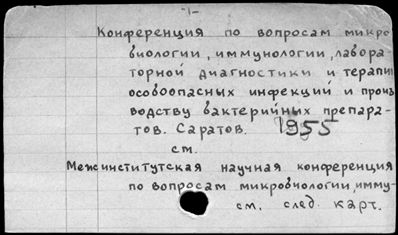 -1-
Конференция по вопросам микро
биологии, иммунологии, лабора-
торной диагностики и терапии
особоопасных инфекций и произ
водству бактерийных препара-
тов. Саратов. 1955
см.
Межинститутская научная конференция
по вопросам микробиологии, имму-
см. след. карт.